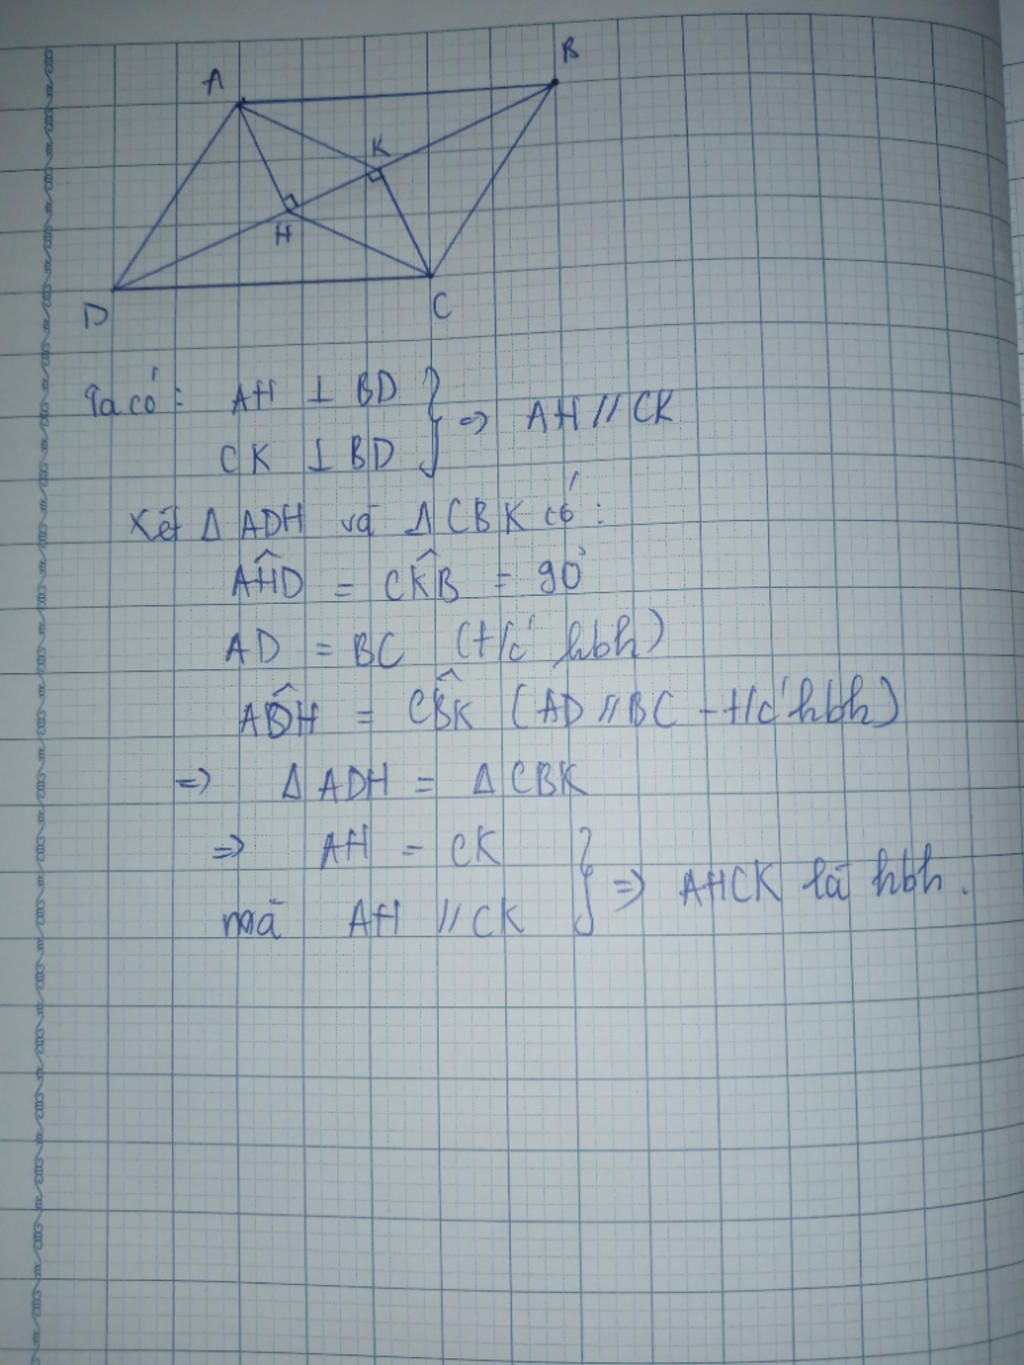 A
B
K
H
D
C
Ta có: AH ⊥ BD
CK ⊥ BD } => AH // CK
Xét Δ ADH và Δ CBK có:
\widehat{AHD} = \widehat{CKB} = 90°
AD = BC (t/c hbh)
\widehat{ADH} = \widehat{CBK} (AD // BC - t/c hbh)
=> Δ ADH = Δ CBK
=> AH = CK
mà AH // CK } => AHCK là hbh.